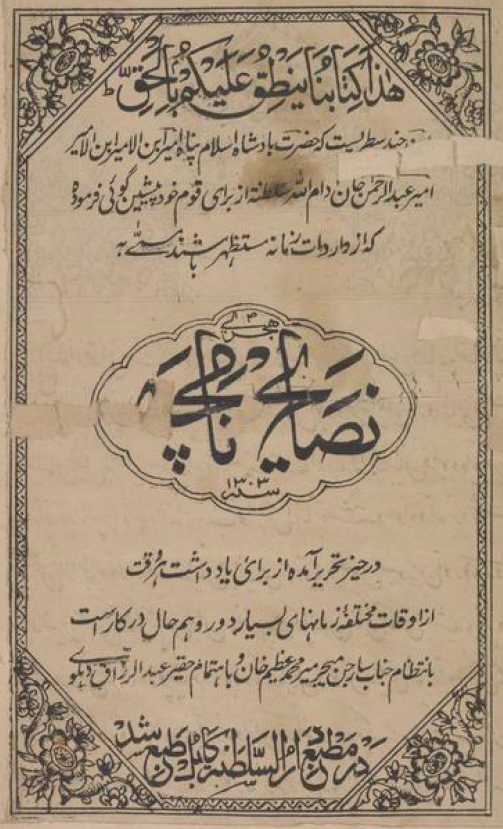 هذا کتابنا ینطق علیکم بالحق
چند سطریست که حضرت بادشاه اسلام پناه امیر ابن الامیر ابن الامیر
امیر عبدالرحمن جان دام الله سلطنة از برای قوم خود پیشین گوئی فرموده
که از واردات زمانه مستظهر باشند مسمی به
هجری
نصایح نامچه
سنه ۱۳۰۳
در حیز تحریر آمده از برای یادداشت هر وقت
از اوقات مختلفه زمانهای بسیار دور و هم حال در کار است
بانتظام جناب سارجن میجر میر محمد عظیم خان و باهتمام حقیر عبدالرزاق دهلوی
در مطبع دارالسلطنة کابل طبع شد